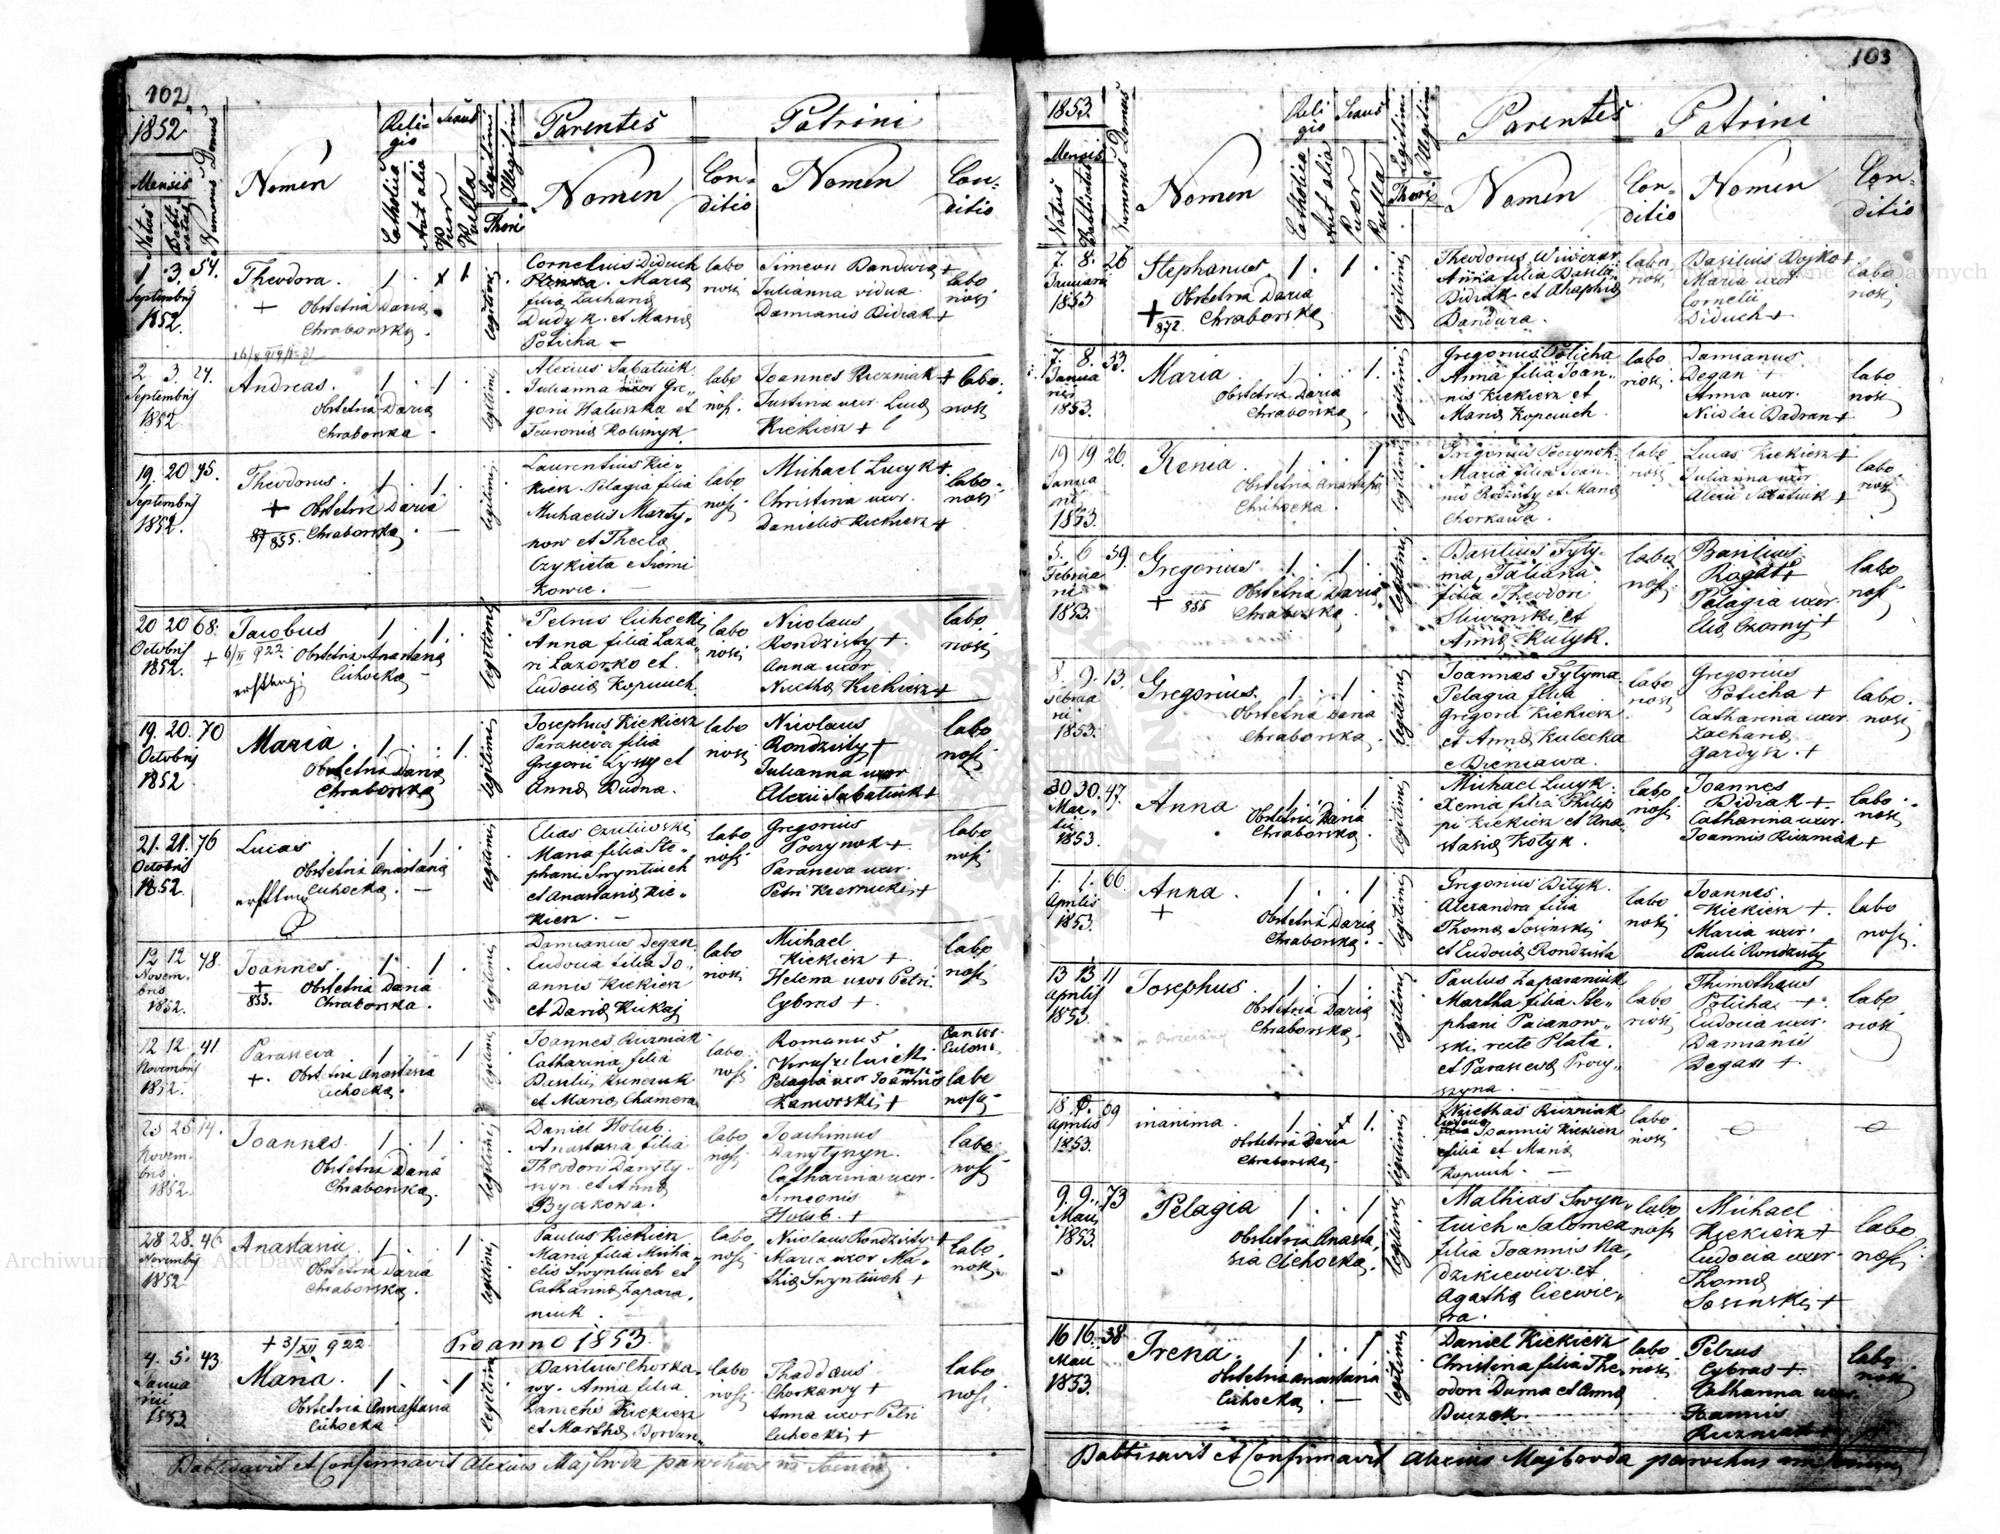 102
1852
Mensis
Natus
Numerus Domus
Nomen
Religio
Catholica
Aut alia
Sexus
Puer
Puella
Legitimi
Illegitimi
Thori
Parentes
Nomen
Conditio
Patrini
Nomen
Conditio
1 3 54.
Septembris
1852.
Theodora.
+ Obstetrix Daria
Chraborska
legitimi
Cornelius Diduch
Maria
filia Zachariæ
Dudyk et Mariæ
Poticha
laboriosi
Simeon Bandura +
Julianna vidua
Damianis Didiak +
laboriosi
2. 3. 27.
Septembris
1852
Andreas.
Obstetrix Daria
Chraborska
legitimi
Alexius Sabatiuk
Julianna filia Gre-
gorii Haluszka et
laboriosi
Joannes Ruzniak +
Justina uxor Lucæ
Kiekisz +
laboriosi
19. 20 45.
Septembris
1852.
Theodorus.
+ Obstetrix Daria
855. Chraborska
legitimi
Laurentius Kie-
kisz. Pelagia filia
Michaelis Marty-
now et Thecla
laboriosi
Michael Lucyk +
Christina uxor
Danielis Kiekisz +
laboriosi
20 20 68.
Octobris
1852.
Jacobus
+ 6/II 922 Obstetrix Anastasia
Cichocka
legitimi
Petrus Cichocki
Anna filia Laza-
ri Lazorko et
Eudocia Kopciuch
laboriosi
Nicolaus
Rondzisty +
Anna uxor
Kiekisz +
laboriosi
19. 20. 70
Octobris
1852
Maria.
Obstetrix Daria
Chraborska
legitimi
Josephus Kiekisz
Parasceva filia
Gregorii Lyssy et
Anna Dudna.
laboriosi
Nicolaus
Rondzisty +
Julianna uxor
Alexii Sabatiuk +
laboriosi
21. 21. 76
Octobris
1852.
Lucas
Obstetrix Anastasia
Cichocka.
legitimi
Elias
Maria filia Ste-
phani Swyntiuch
et Anastasia Kie-
kisz.
laboriosi
Gregorius
Poczynok +
Parasceva uxor
Petri Kiernicki +
laboriosi
12 12 48.
Novem-
bris
1852.
Joannes.
+ Obstetrix Daria
853. Chraborska.
legitimi
Damianus Degan
Eudocia filia Jo-
annis Kiekisz
et Daria Kukaj
laboriosi
Michael
Kiekisz +
Helena uxor Petri
Cybras +
laboriosi
12 12. 41
Novembris
1852.
Parasceva
+. Obstetrix Anastasia
Cichocka.
legitimi
Joannes Ruzniak
Catharina filia
Basilii
et Maria Chamera
laboriosi
Romanus
Pelagia uxor Joannis
Kanivski +
laboriosi
25 25 14.
Novem-
bris.
1852.
Joannes.
Obstetrix Daria
Chraborska.
legitimi
Daniel Holub.
Anastasia filia
Theodori Danyty-
szyn et Anna
Byczkowa.
laboriosi
Joachimus
Danytyszyn.
Catharina uxor
Simeonis
Holub. +
laboriosi
28 28. 46
Novembris
1852
Anastasia.
Obstetrix Daria
Chraborska.
legitimi
Paulus Kiekisz
Maria filia Micha-
elis Swyntiuch et
Catharina Zapara-
niuk
laboriosi
Nicolaus Rondzisty +
Maria uxor Ma-
thiæ Swyntiuch +
laboriosi
+ 3/XII 922
Pro anno 1853.
4. 5. 43
Janua
rii
1853
Maria.
Obstetrix Anastasia
Cichocka
legitimi
Basilius Chorka-
wy. Anna filia
Kiekisz
et Martha
laboriosi
Thaddæus
Chorkawy +
Anna uxor Petri
Cichocki +
laboriosi
Baptisavit et Confirmavit Alexius Majbroda parochus
103
1853
Mensis
Natus
Baptisatus
Numerus Domus
Nomen
Religio
Catholica
Aut alia
Sexus
Puer
Puella
Legitimi
Illegitimi
Thori
Parentes
Nomen
Conditio
Patrini
Nomen
Conditio
7. 8. 26
Januarii
1853
Stephanus.
Obstetrix Daria
+ 872. Chraborska
legitimi
Theodorus Wiwczar
Anna filia Basilii
Didiak et Ahaphia
Bandura.
laboriosi
Basilius Bojko +
Maria uxor
Cornelii
Diduch +
laboriosi
7. 8. 33.
Janua
rii
1853.
Maria.
Obstetrix Daria
Chraborska
legitimi
Gregorius Poticha
Anna filia Joan-
nis Kiekisz et
Maria Kopciuch.
laboriosi
Damianus
Degan +
Anna uxor
Nicolai Badran +
laboriosi
19 19 26.
Janua
rii
1853.
Xenia.
Obstetrix Anastasia
Cichocka.
legitimi
Gregorius Poczynok
Maria filia Joan-
nis Rodzisty et Maria
Chorkawa.
laboriosi
Lucas Kiekisz +
Julianna uxor
Alexii Sabatiuk +
laboriosi
5. 6 59.
Februa
rii
1853.
Gregorius.
+ 855 Obstetrix Daria
Chraborska
legitimi
Basilius Tyty-
ma, Tatianna
filia Theodori
Sliwinski et
Anna Kutyk.
laboriosi
Basilius
Rogat +
Pelagia uxor
Eliæ Czorny +
laboriosi
8. 9. 13.
Februa
rii
1853.
Gregorius.
Obstetrix Daria
Chraborska.
legitimi
Joannes Tytyma
Pelagia filia
Gregorii Kiekisz
et Anna Kulecka
e Dzieniawa.
laboriosi
Gregorius
Poticha +
Catharina uxor
Zachariæ
Gardysz. +
laboriosi
30 30. 47.
Mar-
tii
1853.
Anna
Obstetrix Daria
Chraborska.
legitimi
Michael Lucyk.
Xenia filia Philip-
pi Kiekisz et Ana-
stasia Kotyk.
laboriosi
Joannes
Didiak +
Catharina uxor
Joannis Ruzniak +
laboriosi
1. 1. 66.
Aprilis
1853.
Anna.
+
Obstetrix Daria
Chraborska.
legitimi
Gregorius Dityk.
Alexandra filia
Thomæ Sosinski
et Eudocia Rondzista
laboriosi
Joannes
Kiekisz +.
Maria uxor
Pauli Rondzisty
laboriosi
13 13 11
Aprilis
1853.
Josephus.
Obstetrix Daria
Chraborska.
legitimi
Paulus Zaparaniuk
Martha filia Ste-
phani Paianow-
ski recte Plata.
et Parasceva Proxy-
szyna.
laboriosi
Thimotheus
Poticha +
Eudocia uxor
Damianis
Degan +
laboriosi
18 69
Aprilis
1853.
inanima.
Obstetrix Daria
Chraborska.
legitimi
Nicethas Ruzniak
Joannis Kiekisz
filia et Maria
Kopciuch.
laboriosi
9. 9. 73
Maii
1853.
Pelagia
Obstetrix Anasta-
sia Cichocka.
legitimi
Mathias Swyn-
tiuch Salomea
filia Joannis Na-
dzikiewicz et
Agatha
laboriosi
Michael
Kiekisz +
Eudocia uxor
Thomæ
Sosinski +
laboriosi
16 16. 38
Maii
1853.
Irena.
Obstetrix Anastasia
Cichocka.
legitimi
Daniel Kiekisz
Christina filia The-
odori Duma et Anna
laboriosi
Petrus
Cybras +
Catharina uxor
Joannis
Ruzniak +
laboriosi
Baptisavit et Confirmavit Alexius Majbroda parochus
Archiwum Główne Akt Dawnych